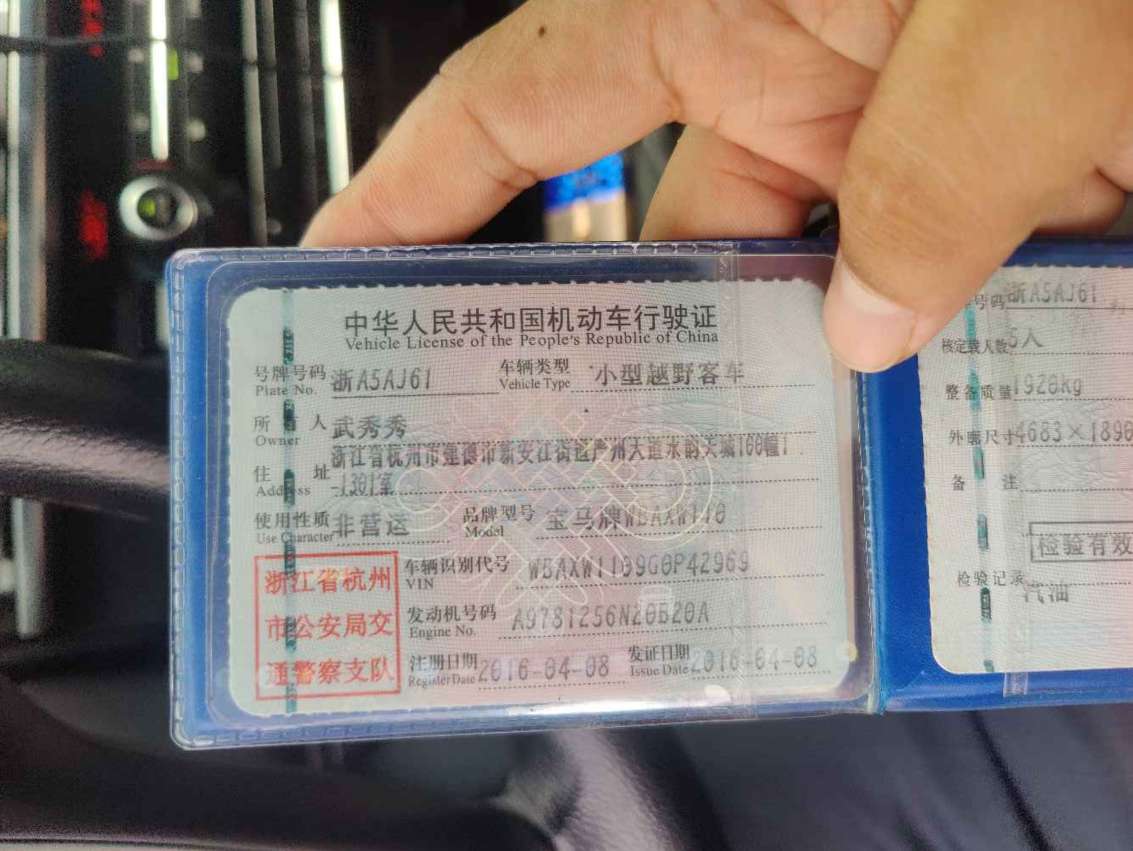 中华人民共和国机动车行驶证
Vehicle License of the People's Republic of China
号牌号码 浙A5AJ61 车辆类型 小型越野客车
Plate No. Vehicle Type
所 人 武秀秀
Owner
住 址 浙江省杭州市建德市新安江街道严州大道水韵天城160幢1
Address -1301室
使用性质 非营运 品牌型号 宝马牌WBAXW110
Use Character Model
车辆识别代号 WBAXW1109G0P42969
VIN
发动机号码 A9781256N20B20A
Engine No.
注册日期 2016-04-08 发证日期 2016-04-08
Register Date Issue Date
浙江省杭州
市公安局交
通警察支队
号码 浙A5AJ61
核定载人数 5人
整备质量 1920kg
外廓尺寸 4683×1898
备 注
检验有效
检验记录
汽油